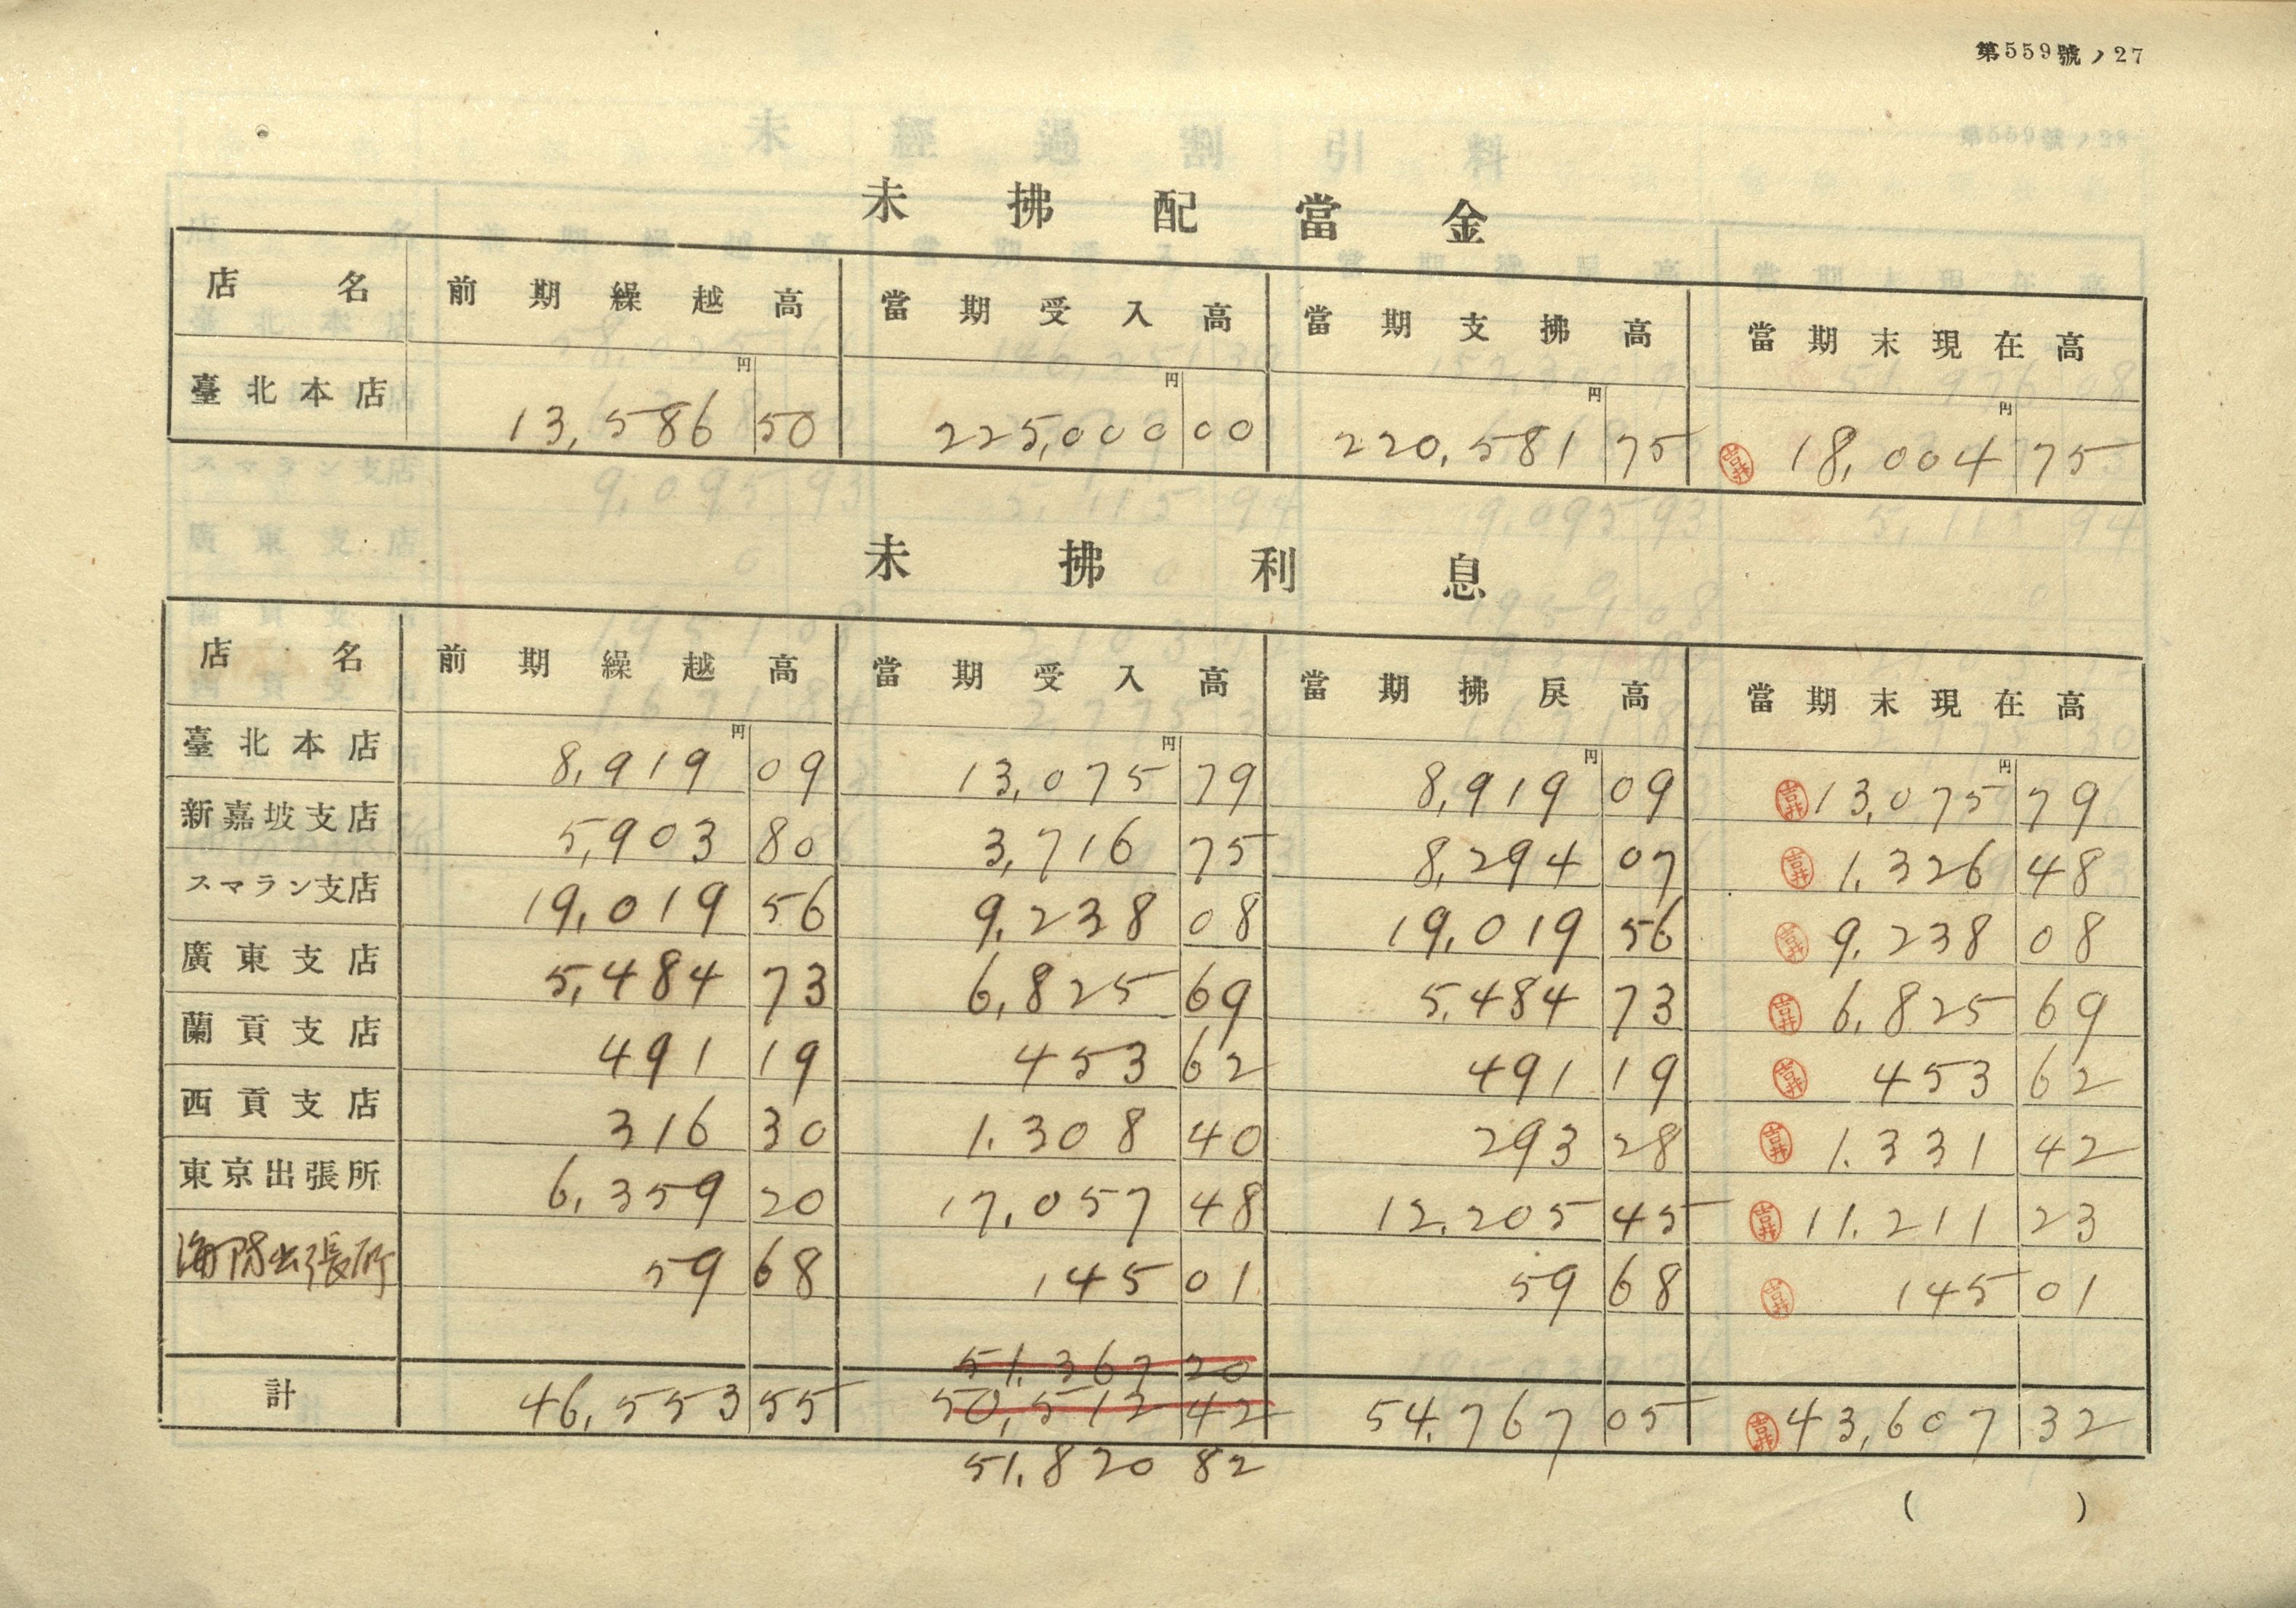 第559號ノ27
未拂配當金
店名 前期繰越高 當期受入高 當期支拂高 當期末現在高
臺北本店 円 13,586 50 円 225,000 00 円 220,581 75 吉井 円 18,004 75
未拂利息
店名 前期繰越高 當期受入高 當期拂戾高 當期末現在高
臺北本店 円 8,919 09 円 13,075 79 円 8,919 09 吉井 円 13,075 79
新嘉坡支店 5,903 80 3,716 75 8,294 07 吉井 1,326 48
スマラン支店 19,019 56 9,238 08 19,019 56 吉井 9,238 08
廣東支店 5,484 73 6,825 69 5,484 73 吉井 6,825 69
蘭貢支店 491 19 453 62 491 19 吉井 453 62
西貢支店 316 30 1,308 40 293 28 吉井 1,331 42
東京出張所 6,359 20 17,057 48 12,205 45 吉井 11,211 23
海防出張所 59 68 145 01 59 68 吉井 145 01
51,367 20
計 46,553 55 50,512 42 54,767 05 吉井 43,607 32
51,820 82
( )